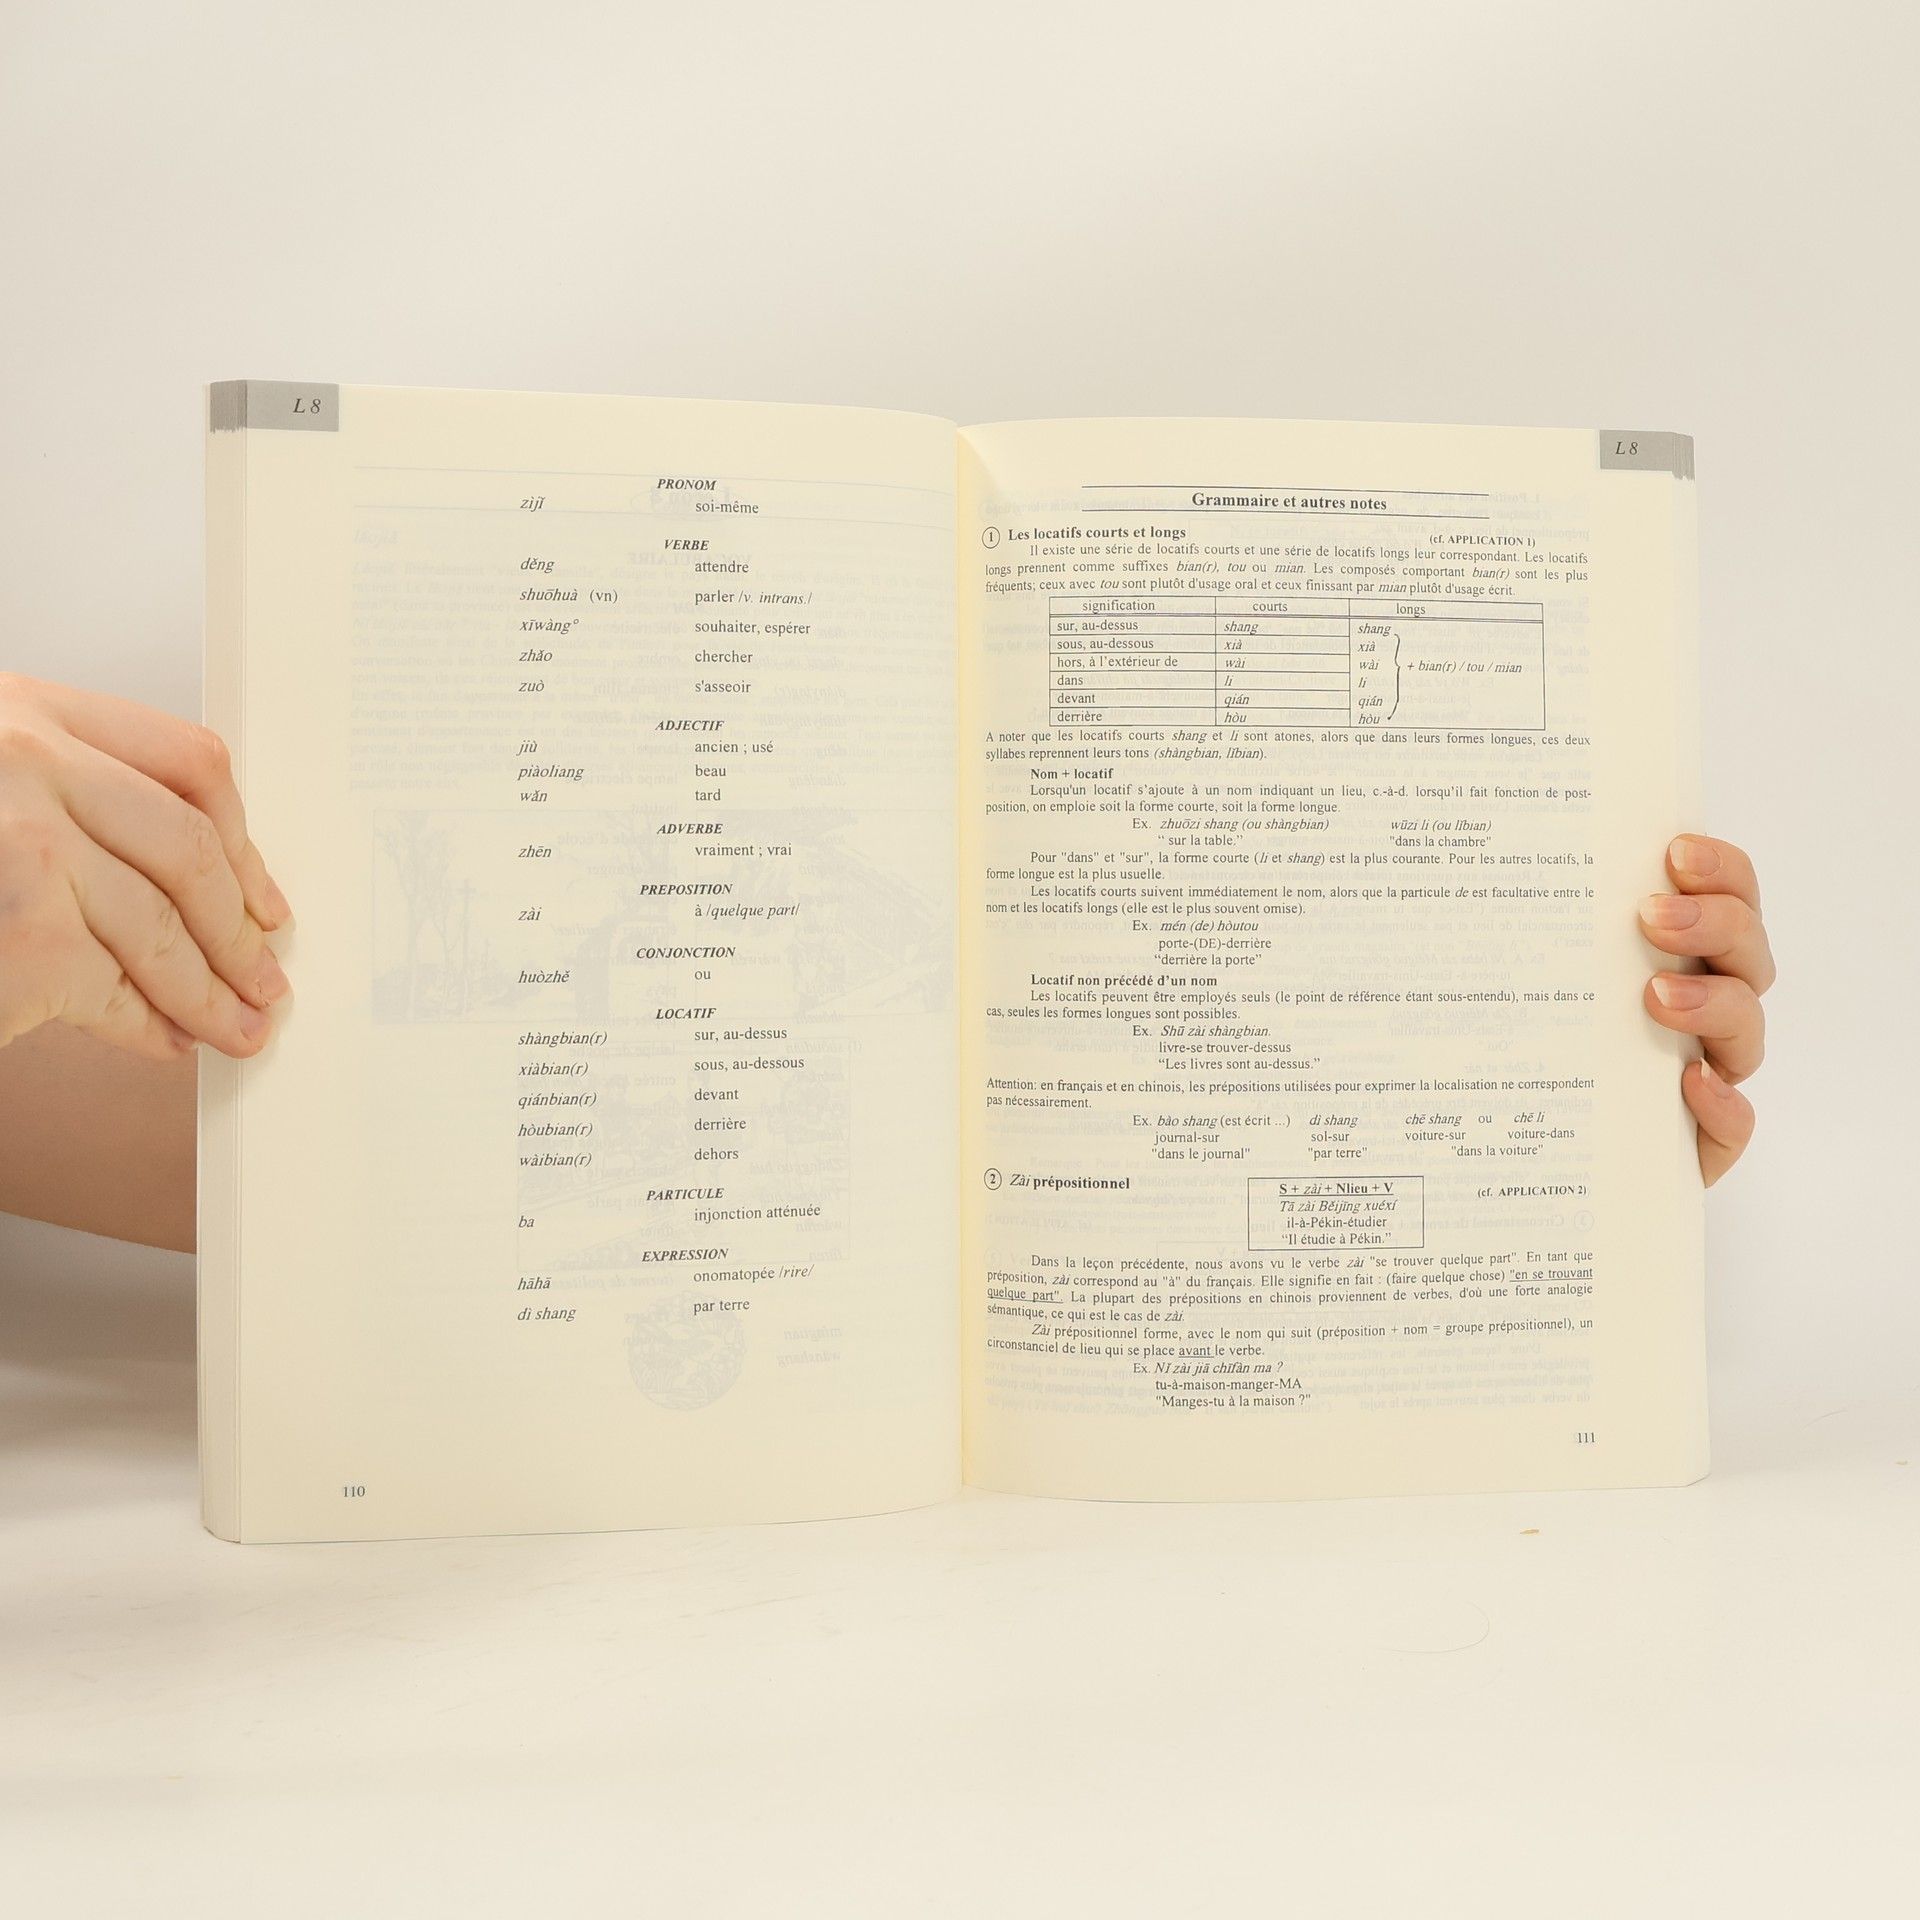 L 8
PRONOM
zìjǐ soi-même
VERBE
děng attendre
shuōhuà (vn) parler /v. intrans./
xīwàng° souhaiter, espérer
zhǎo chercher
zuò s'asseoir
ADJECTIF
jiù ancien ; usé
piàoliang beau
wǎn tard
ADVERBE
zhēn vraiment ; vrai
PREPOSITION
zài à /quelque part/
CONJONCTION
huòzhě ou
LOCATIF
shàngbian(r) sur, au-dessus
xiàbian(r) sous, au-dessous
qiánbian(r) devant
hòubian(r) derrière
wàibian(r) dehors
PARTICULE
ba injonction atténuée
EXPRESSION
hāhā onomatopée /rire/
dì shang par terre
110
L 8
Grammaire et autres notes
1 Les locatifs courts et longs (cf. APPLICATION 1)
Il existe une série de locatifs courts et une série de locatifs longs leur correspondant. Les locatifs
longs prennent comme suffixes bian(r), tou ou mian. Les composés comportant bian(r) sont les plus
fréquents; ceux avec tou sont plutôt d'usage oral et ceux finissant par mian plutôt d'usage écrit.
signification courts longs
sur, au-dessus shang shang
sous, au-dessous xià xià
hors, à l'extérieur de wài wài + bian(r) / tou / mian
dans li li
devant qián qián
derrière hòu hòu
A noter que les locatifs courts shang et li sont atones, alors que dans leurs formes longues, ces deux
syllabes reprennent leurs tons (shàngbian, lǐbian).
Nom + locatif
Lorsqu'un locatif s'ajoute à un nom indiquant un lieu, c.-à-d. lorsqu'il fait fonction de post-
position, on emploie soit la forme courte, soit la forme longue.
Ex. zhuōzi shang (ou shàngbian) wūzi li (ou lǐbian)
" sur la table." "dans la chambre"
Pour "dans" et "sur", la forme courte (li et shang) est la plus courante. Pour les autres locatifs, la
forme longue est la plus usuelle.
Les locatifs courts suivent immédiatement le nom, alors que la particule de est facultative entre le
nom et les locatifs longs (elle est le plus souvent omise).
Ex. mén (de) hòutou
porte-(DE)-derrière
"derrière la porte"
Locatif non précédé d'un nom
Les locatifs peuvent être employés seuls (le point de référence étant sous-entendu), mais dans ce
cas, seules les formes longues sont possibles.
Ex. Shū zài shàngbian.
livre-se trouver-dessus
"Les livres sont au-dessus."
Attention: en français et en chinois, les prépositions utilisées pour exprimer la localisation ne correspondent
pas nécessairement.
Ex. bào shang (est écrit ...) dì shang chē shang ou chē li
journal-sur sol-sur voiture-sur voiture-dans
"dans le journal" "par terre" "dans la voiture"
2 Zài prépositionnel S + zài + Nlieu + V (cf. APPLICATION 2)
Tā zài Běijīng xuéxí
il-à-Pékin-étudier
"Il étudie à Pékin."
Dans la leçon précédente, nous avons vu le verbe zài "se trouver quelque part". En tant que
préposition, zài correspond au "à" du français. Elle signifie en fait : (faire quelque chose) "en se trouvant
quelque part". La plupart des prépositions en chinois proviennent de verbes, d'où une forte analogie
sémantique, ce qui est le cas de zài.
Zài prépositionnel forme, avec le nom qui suit (préposition + nom = groupe prépositionnel), un
circonstanciel de lieu qui se place avant le verbe.
Ex. Nǐ zài jiā chīfàn ma ?
tu-à-maison-manger-MA
"Manges-tu à la maison ?"
111